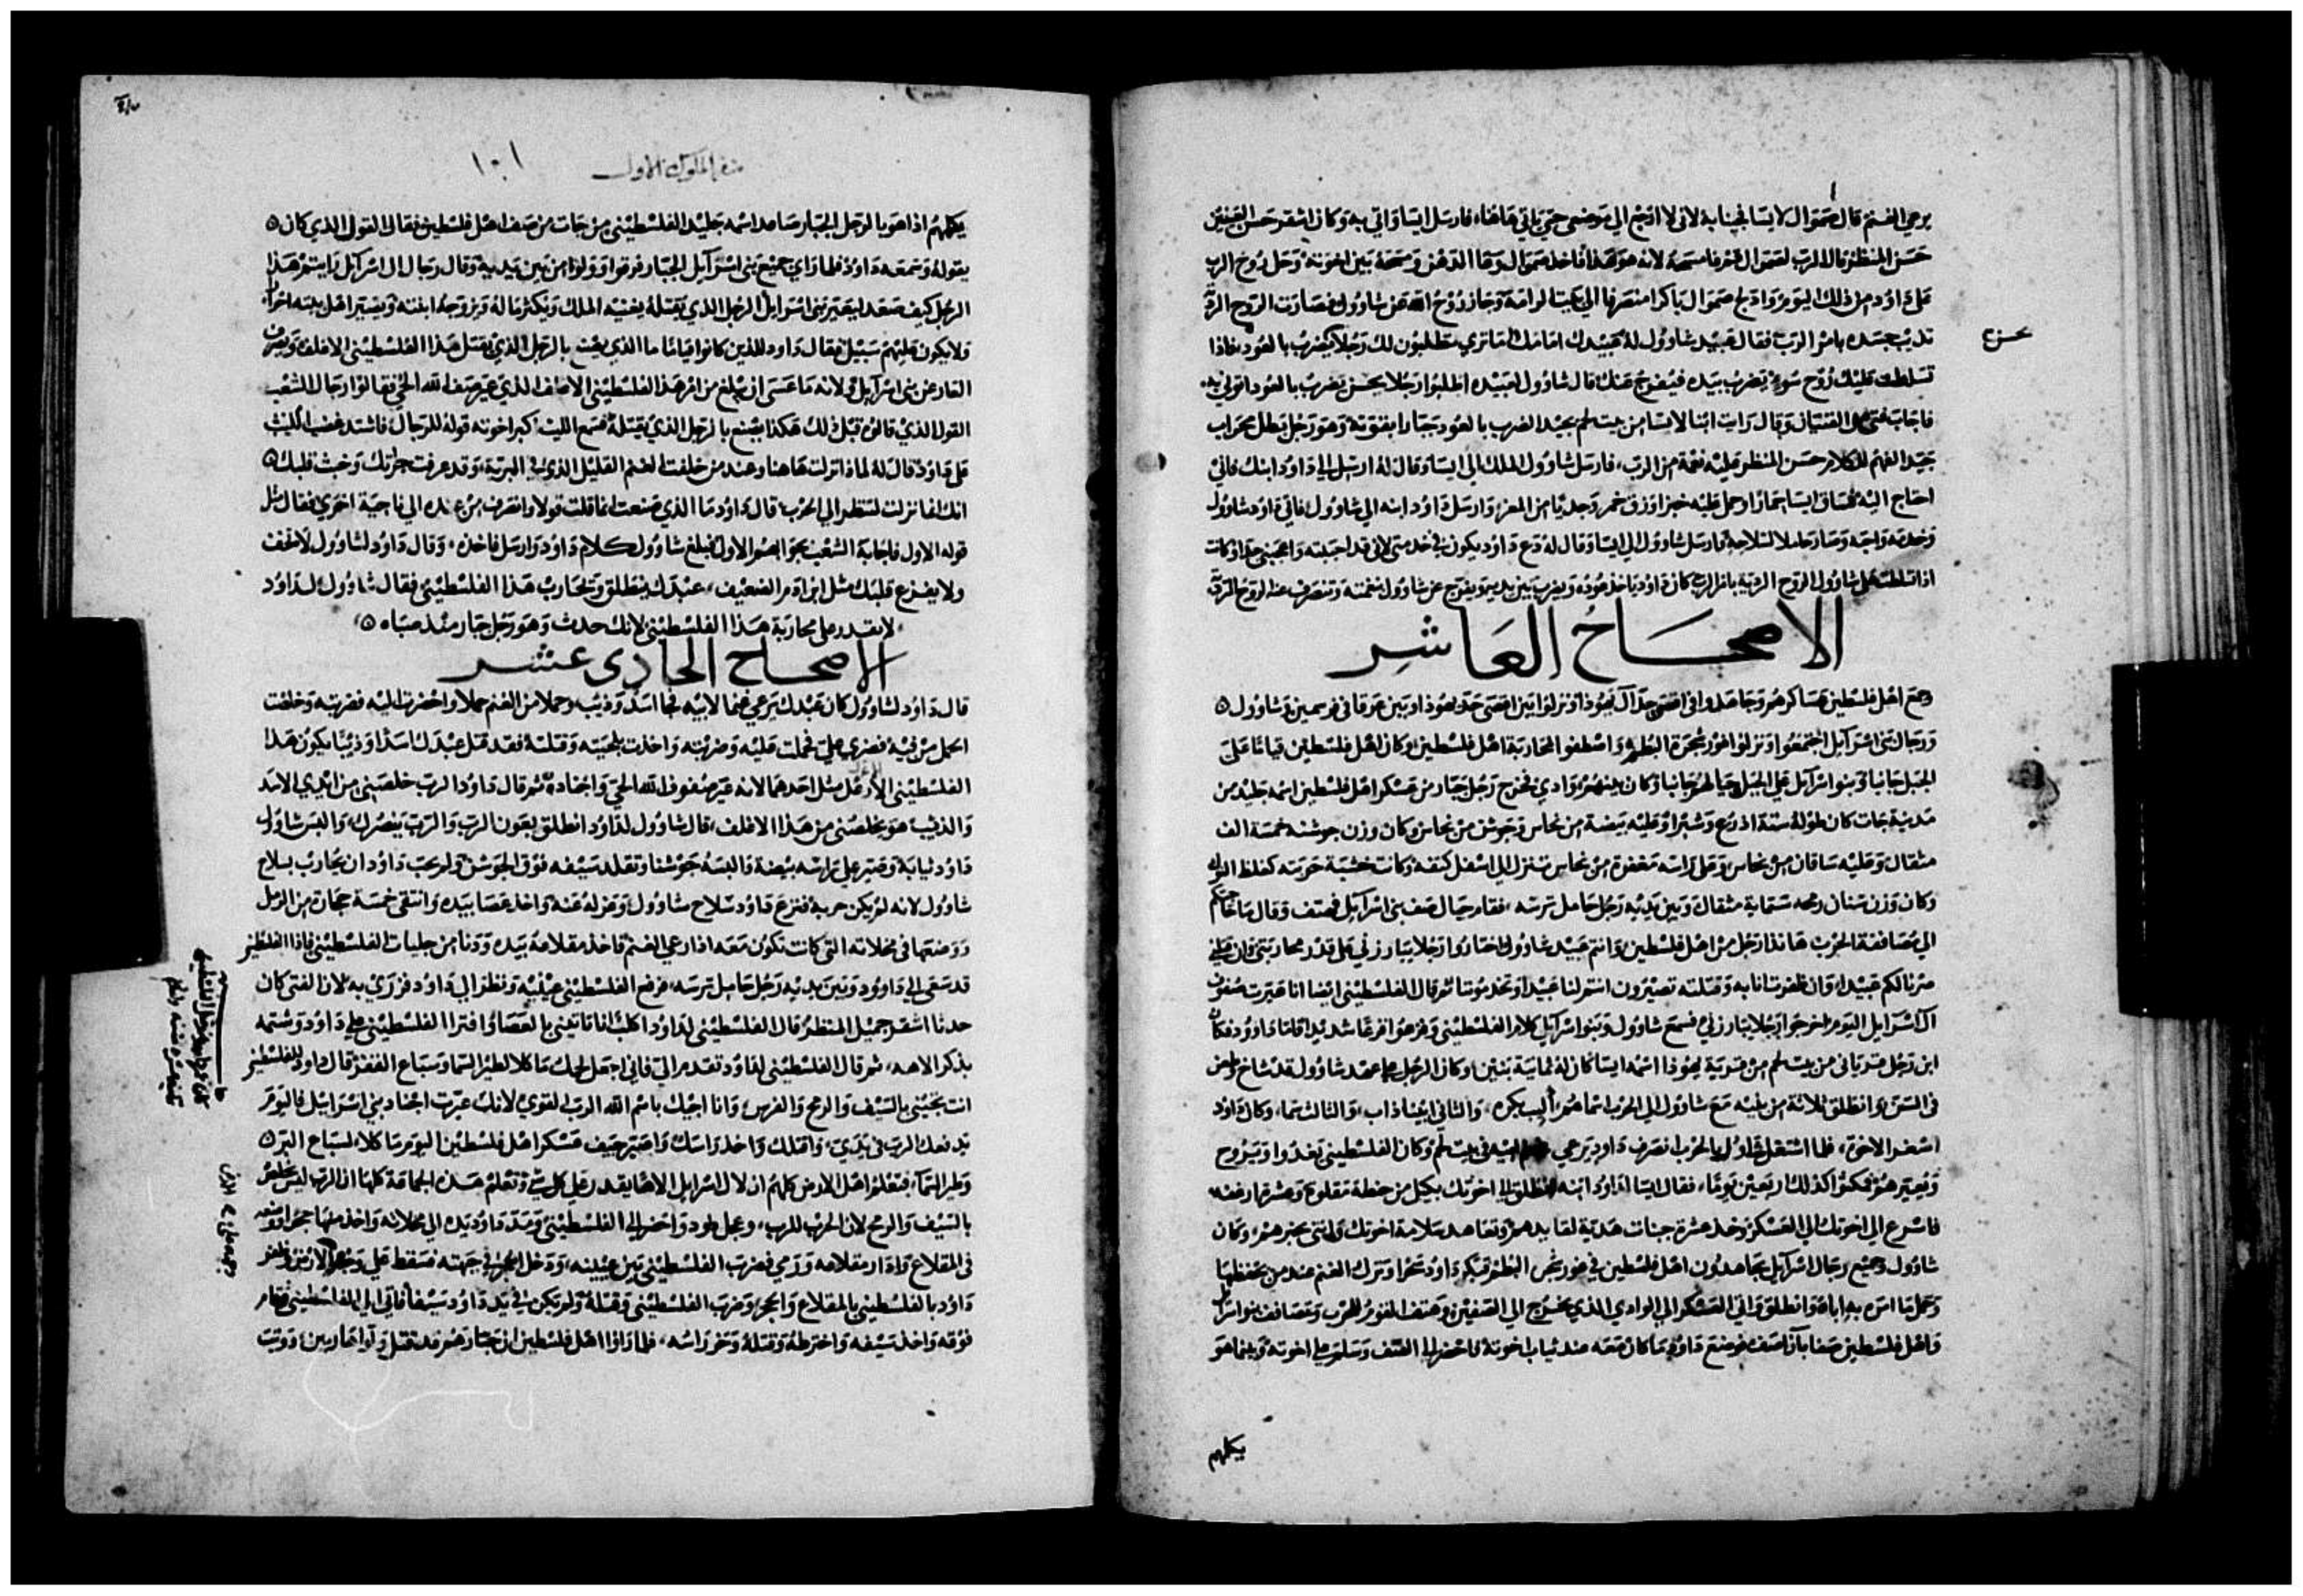 يرعي الغنم قال صموال لايسا فجينا به لاني لا ارجع الي موضعي حتي ياتي هاهنا، فارسل ايسا واتي به وكان اشقر حسن العينين
حسن المنظر فقال الرب لصموال قم فامسحه لانه هو هذا فاخذ صموال وعا الدهن ومسحه بين اخوته وحل روح الرب
علي داود من ذلك اليوم وادلج صموال باكرا منصرفا الي بيته الرامة وجاز روح الله عن شاوول فصارت الروح الردية
تديب جسده بامر الرب فقال عبيد شاوول له عبيدك امامك
تسلطت عليك روح سو يضرب بيده فيفرج عنك قال شاوول لعبيده اطلبوا رجلا يحسن يضرب بالعود اتوني به
فاجابه فتي من الفتيان وقال رايت ابنا لايسا من بيت لحم يجيد الضرب بالعود جبارا بقوته وهو رجل بطل محراب
جيد الفهم للكلام حسن المنظر عليه نعمة من الرب، فارسل شاوول الملك الي ايسا وقال له ارسل الي داود ابنك فاني
احتاج اليه فساق ايسا حمارا وحمل عليه خبزا وزق خمر وجديا من المعز وارسل داود ابنه الي شاوول فاتي داود شاوول
وخدمه واحبه وصار حاملا لسلاحه فارسل شاوول الي ايسا وقال له دع داود يكون في خدمتي لاني قد احببته واعجبني جدا وكانت
اذا تسلطت علي شاوول الروح الردية بامر الرب كان داود ياخذ عوده ويضرب بين يديه ويفرج عن شاوول بنغمته وتنصرف عنه الروح الردية
الاصحاح العاشر
وجمع اهل فلسطين عساكرهم وجاهدوا في اقصي حد ال يهوذا ونزلوا بين اقصي حد يهوذا وبين عرقا في فرسمين وشاوول
ورجال بني اسرآيل اجتمعوا ونزلوا غور شجرة البطم واصطفوا لمحاربة اهل فلسطين وكان اهل فلسطين قياما علي
الجبل جانبا وبنو اسرآيل علي الجبل حيالهم جانبا وكان بينهم وادي فخرج رجل جبار من عسكر اهل فلسطين اسمه جليد من
مدينة جات كان طوله ستة اذرع وشبرا وعليه بيضة من نحاس وجوشن من نحاس وكان وزن جوشنه خمسة الف
مثقال وعليه ساقان من نحاس وعلي راسه مغفرة من نحاس تنزل الي اسفل كتفه وكانت خشبة حربته كغلظ النول
وكان وزن سنان رمحه ستماية مثقال وبين يديه رجل حامل ترسه، فقام حيال صف بني اسرآيل فهتف وقال ما حاجتكم
الي مصاففة الحرب هانذا رجل من اهل فلسطين وانتم عبيد شاوول اختاروا رجلا يبارزني علي قدر محاربتي وان قتلني
صرنا لكم عبيدا، وان ظفرت انا به وقتلته تصيرون انتم لنا عبيدا وتخدمونا ثم قال الفلسطيني ايضا انا عيرت صفوف
آل اسرايل اليوم اخرجوا رجلا يبارزني فسمع شاوول وبنو اسرآيل كلام الفلسطيني وفزعوا فزعا شديدا فاما داوود فكان
ابن رجل من بيت لحم من قرية يهوذا اسمه ايسا كان له ثمانية بنين وكان الرجل علي عهد شاوول قد شاخ وطعن
في السن وانطلق ثلاثة من بنيه مع شاوول الي الحرب اسماهم اليب بكره، والثاني ابيناذاب، والثالث سما، وكان داود
اصغر الاخوة، فلما اشتغل شاوول بالحرب انصرف داود يرعي غنم ابيه في بيت لحم وكان الفلسطيني يغدوا ويروح
ويعيرهم فمكثوا كذلك اربعين يوما، فقال ايسا لداود ابنه انطلق الي اخوتك بكيل من حنطة مقلوة وعشرة ارغفة
فاسرع الي اخوتك الي العسكر وخذ عشرة جبنات هدية لقايدهم وتعاهد سلامة اخوتك وايتني بخبرهم، وكان
شاوول وجميع رجال اسرآيل يجاهدون اهل فلسطين في غور شجر البطم فبكر داود سحرا وترك الغنم عند من يحفظها
وحمل ما امره به اباه وانطلق واتي العسكر الي الوادي الذي يخرج الي الصفين وهتف المغور للحرب وتصافف بنو اسرايل
واهل فلسطين صفا بازا صف فوضع داود ما كان معه عند ثياب اخوته فاحضر الي الصف وسلم علي اخوته وبينما هو
يكلمهم
محزع
سفر الملوك الاول
١٠١
يكلمهم اذا هو بالرجل الجبار صاعد اسمه جليد الفلسطيني من جات من صف اهل فلسطين فقال القول الذي كان
يقوله وسمعه داود فلما راي جميع بني اسرآيل الجبار فرقوا وولوا من بين يديه وقال رجال ال اسرآيل رايتم هذا
الرجل كيف صعد ليعير بني اسرايل الرجل الذي يقتله يغنيه الملك ويكثر ماله ويزوجه ابنته ويصير اهل بيته احرارا
ولا يكون عليهم سبيل فقال داود للذين كانوا قياما ما الذي يصنع بالرجل الذي يقتل هذا الفلسطيني الاقلف ويصرف
العار عن بني اسرآيل ولانه ما عسي ان يبلغ من امر هذا الفلسطيني الاقلف الذي عير صف الله الحي فقالوا رجال الشعب
القول الذي قالوه قبل ذلك هكذا يصنع بالرجل الذي يقتله فسمع اليب اكبر اخوته قوله للرجال فاشتد غضب اليب
علي داود قال له لماذا نزلت هاهنا وعند من خلفت الغنم القليل الذي في البرية، وقد عرفت جراتك وخبث قلبك
انك انما نزلت لتنظر الي الحرب، قال داود ما الذي صنعت انما قلت قولا وانصرف من عنده الي ناحية اخري فقال مثل
قوله الاول فاجابه الشعب بجوابهم الاول فبلغ شاوول كلام داود وارسل فاخذه، وقال داود لشاوول لا تخف
ولا يفزع قلبك مثل ابن ادم الضعيف، عبدك ينطلق ويحارب هذا الفلسطيني فقال شاوول لداود
لا تقدر علي محاربة هذا الفلسطيني لانك حدث وهو رجل جبار منذ صباه
الاصحاح الحادي عشر
قال داود لشاوول كان عبدك يرعي غنما لابيه فجا اسد وذيب وحملا من الغنم حملا واحضرت اليه فضربته وخلصت
الحمل من فيه فضري علي فحملت عليه وضربته واخذت بلحيته وقتلته فقد قتل عبدك اسدا وذيبا يكون هذا
الفلسطيني الاقلف مثل احدهما لانه عير صفوف الله الحي واجناده ثم قال داود الرب خلصني من ايدي الاسد
والذيب هو يخلصني من هذا الاقلف، قال شاوول لداود انطلق بعون الرب والرب ينصرك، والبس شاوول
داود ثيابه وصير علي راسه بيضة والبسه جوشنا وتقلد سيفه فوق الجوشن ولم يحب داود ان يحارب بسلاح
شاوول لانه لم يكن جربه فنزع داود سلاح شاوول وعزله عنه واخذ عصا بيده وانتقي خمسة حجارة من الرمل
ووضعها في مخلاته التي كانت تكون معه اذا رعي الغنم فاخذ مقلاعه بيده ودنا من جليات الفلسطيني فاذا الفلسطيني
قد سعي الي داوود وبين يديه رجل حامل ترسه، فرفع الفلسطيني عينيه ونظر الي داود فزري به لان الفتي كان
حدثا اشقر جميل المنظر قال الفلسطيني لداود اكلب انا تاتيني بالعصا وافترا الفلسطيني علي داود وشتمه
بذكر الاهه، ثم قال الفلسطيني لداود تقدم الي فاني اجعل لحمك ماكلا لطير السما وسباع القفر قال داود للفلسطيني
انت تجيني بالسيف والرمح والفرس، وانا اجيك باسم الله الرب القوي لانك عيرت اجناد بني اسرايل فاليوم
يدفعك الرب في يدي، واقتلك واخذ راسك واصير جيف عسكر اهل فلسطين اليوم ماكلا لسباع البر
وطير السمآ، فيعلم اهل الارض كلهم ان لال اسرايل الاها يقدر علي كل شي وتعلم هذه الجماعة كلها ان الرب ليس يخلص
بالسيف والرمح لان الحرب للرب، وعجل داود واحضر الي الفلسطيني ومد داود يده الي مخلاته واخذ منها حجرا ووضعه
في المقلاع وادار مقلاعه ورمي فضرب الفلسطيني بين عينيه، ودخل الحجر في جبهته فسقط علي وجهه علي الارض وظفر
داود بالفلسطيني بالمقلاع والحجر وضرب الفلسطيني وقتله ولم يكن في يد داود سيفا فاتي الي الفلسطيني فقام
فوقه واخذ سيفه واخترطه وقتله وحز راسه، فلما راوا اهل فلسطين ان جبارهم قد قتل ولوا هاربين، ووثب